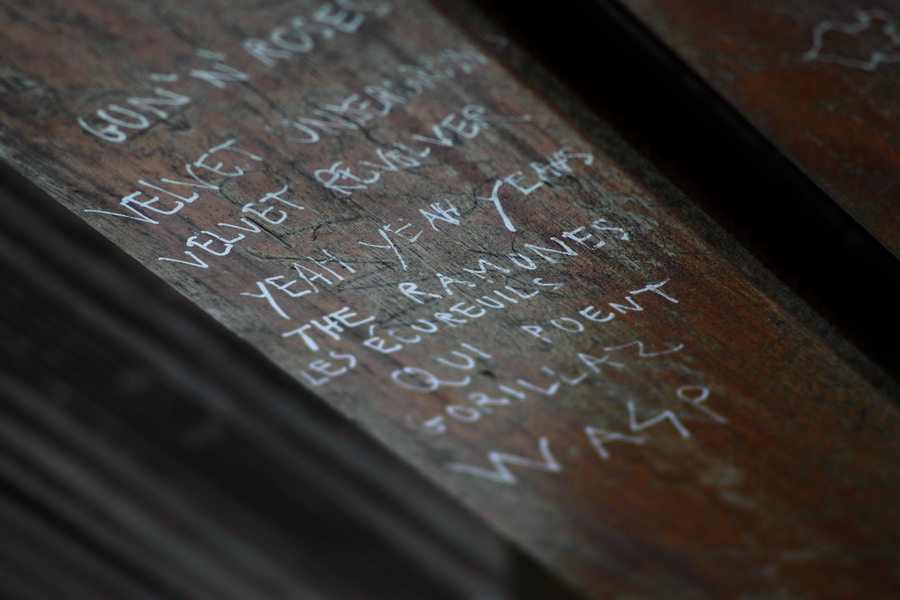 GUN' N' ROSES
VELVET UNDERGROUND
VELVET REVOLVER
YEAH YEAH YEAHS
THE RAMONES
LES ÉCUREUILS
QUI PUENT
GORILLAZ
WASP